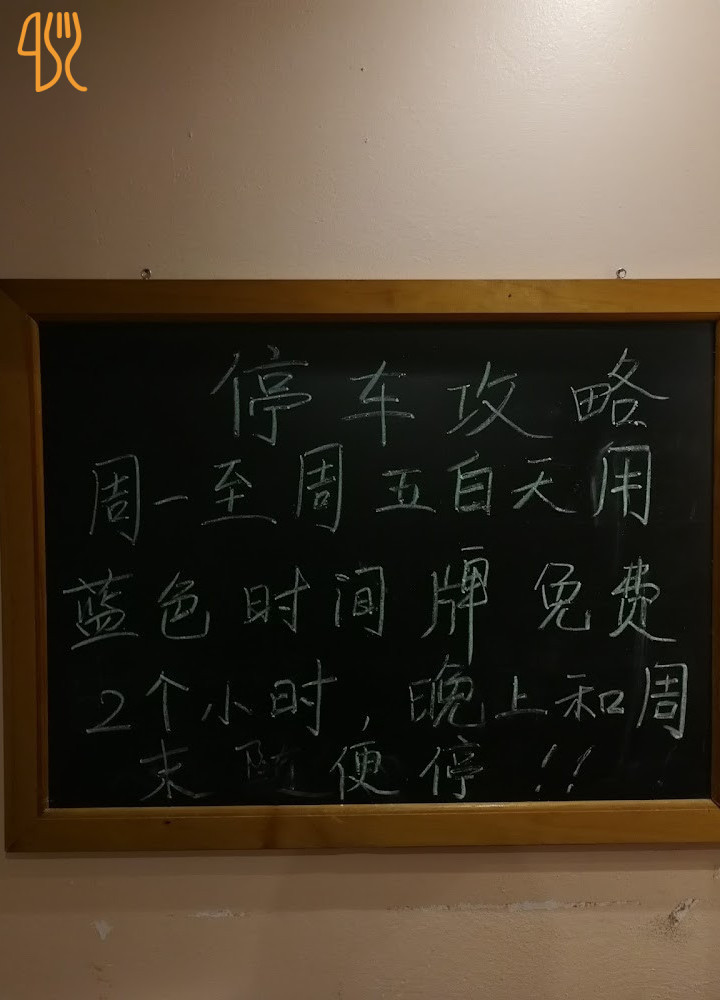 停车攻略
周一至周五白天用
蓝色时间牌 免费
2个小时，晚上和周
末随便停!!